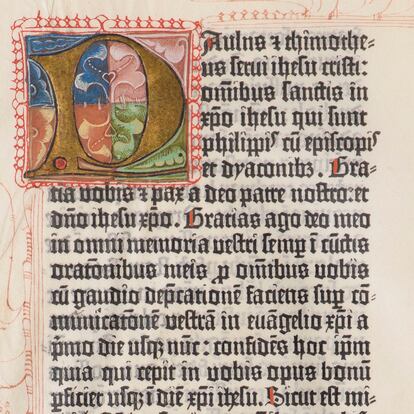 PAulus ⁊ thimothe=
us serui ihesu cristi:
omnibus sanctis in
xp̄o ihesu qui sunt
philippis cū episcopis
et dyaconibꝫ. Gra=
tia vobis ⁊ pax a deo patre nostro: et
dn̄o ihesu xp̄o. Gratias ago deo meo
in omni memoria vestri semp̄ ī cūctis
orationibus meis ꝓ omnibus vobis
cū gaudio dep̄cationē faciens sup̄ cō=
municationē vestrā in euāgelio xp̄i a
p̄mo die usqꝫ nūc: confidēs hoc ip̄m
quia qui cepit in vobis opus bonū
ꝑficiet usqꝫ ī diē xp̄i ihesu. Sicut est mi=